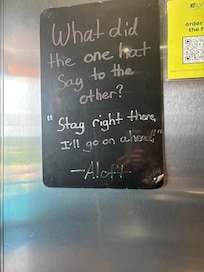 What did
the one hat
Say to the
other?
"Stay right there,
I'll go on ahead!"
-Aloft
order
the f